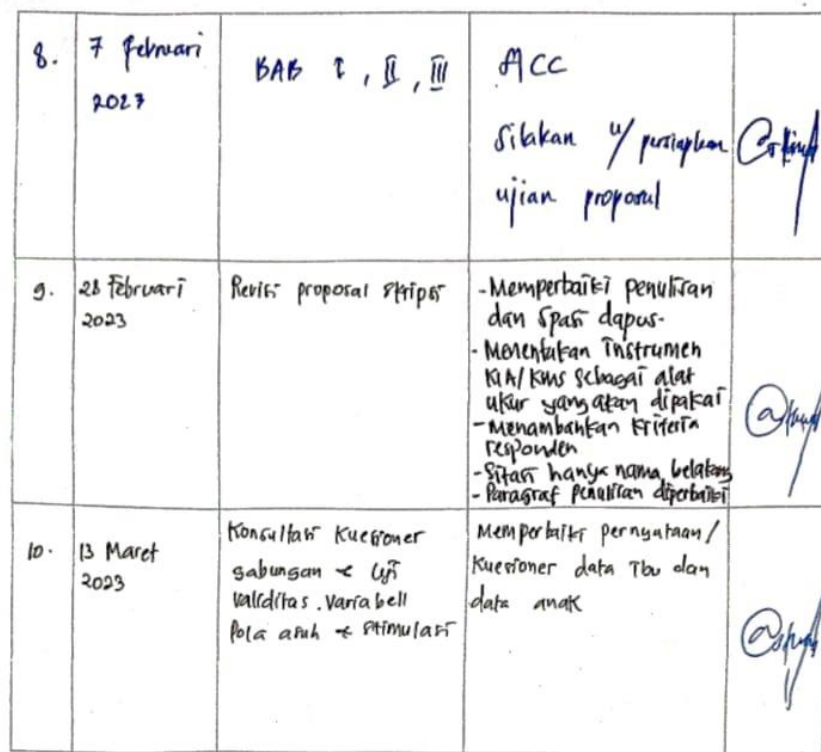 8.
7 Februari
2023
BAB I, II, III
ACC
Silakan u/ persiapkan
ujian proposal
9.
28 Februari
2023
Revisi proposal skripsi
-Memperbaiki penulisan
dan spasi dapus.
-Menentukan instrumen
KIA/KMS sebagai alat
ukur yang akan dipakai
-Menambahkan kriteria
responden
-Sitasi hanya nama belakang
-Paragraf penulisan diperbaiki
10.
13 Maret
2023
Konsultasi Kuesioner
gabungan & Uji
validitas. Variabell
Pola asuh & stimulasi
Memperbaiki pernyataan/
Kuesioner data Ibu dan
data anak